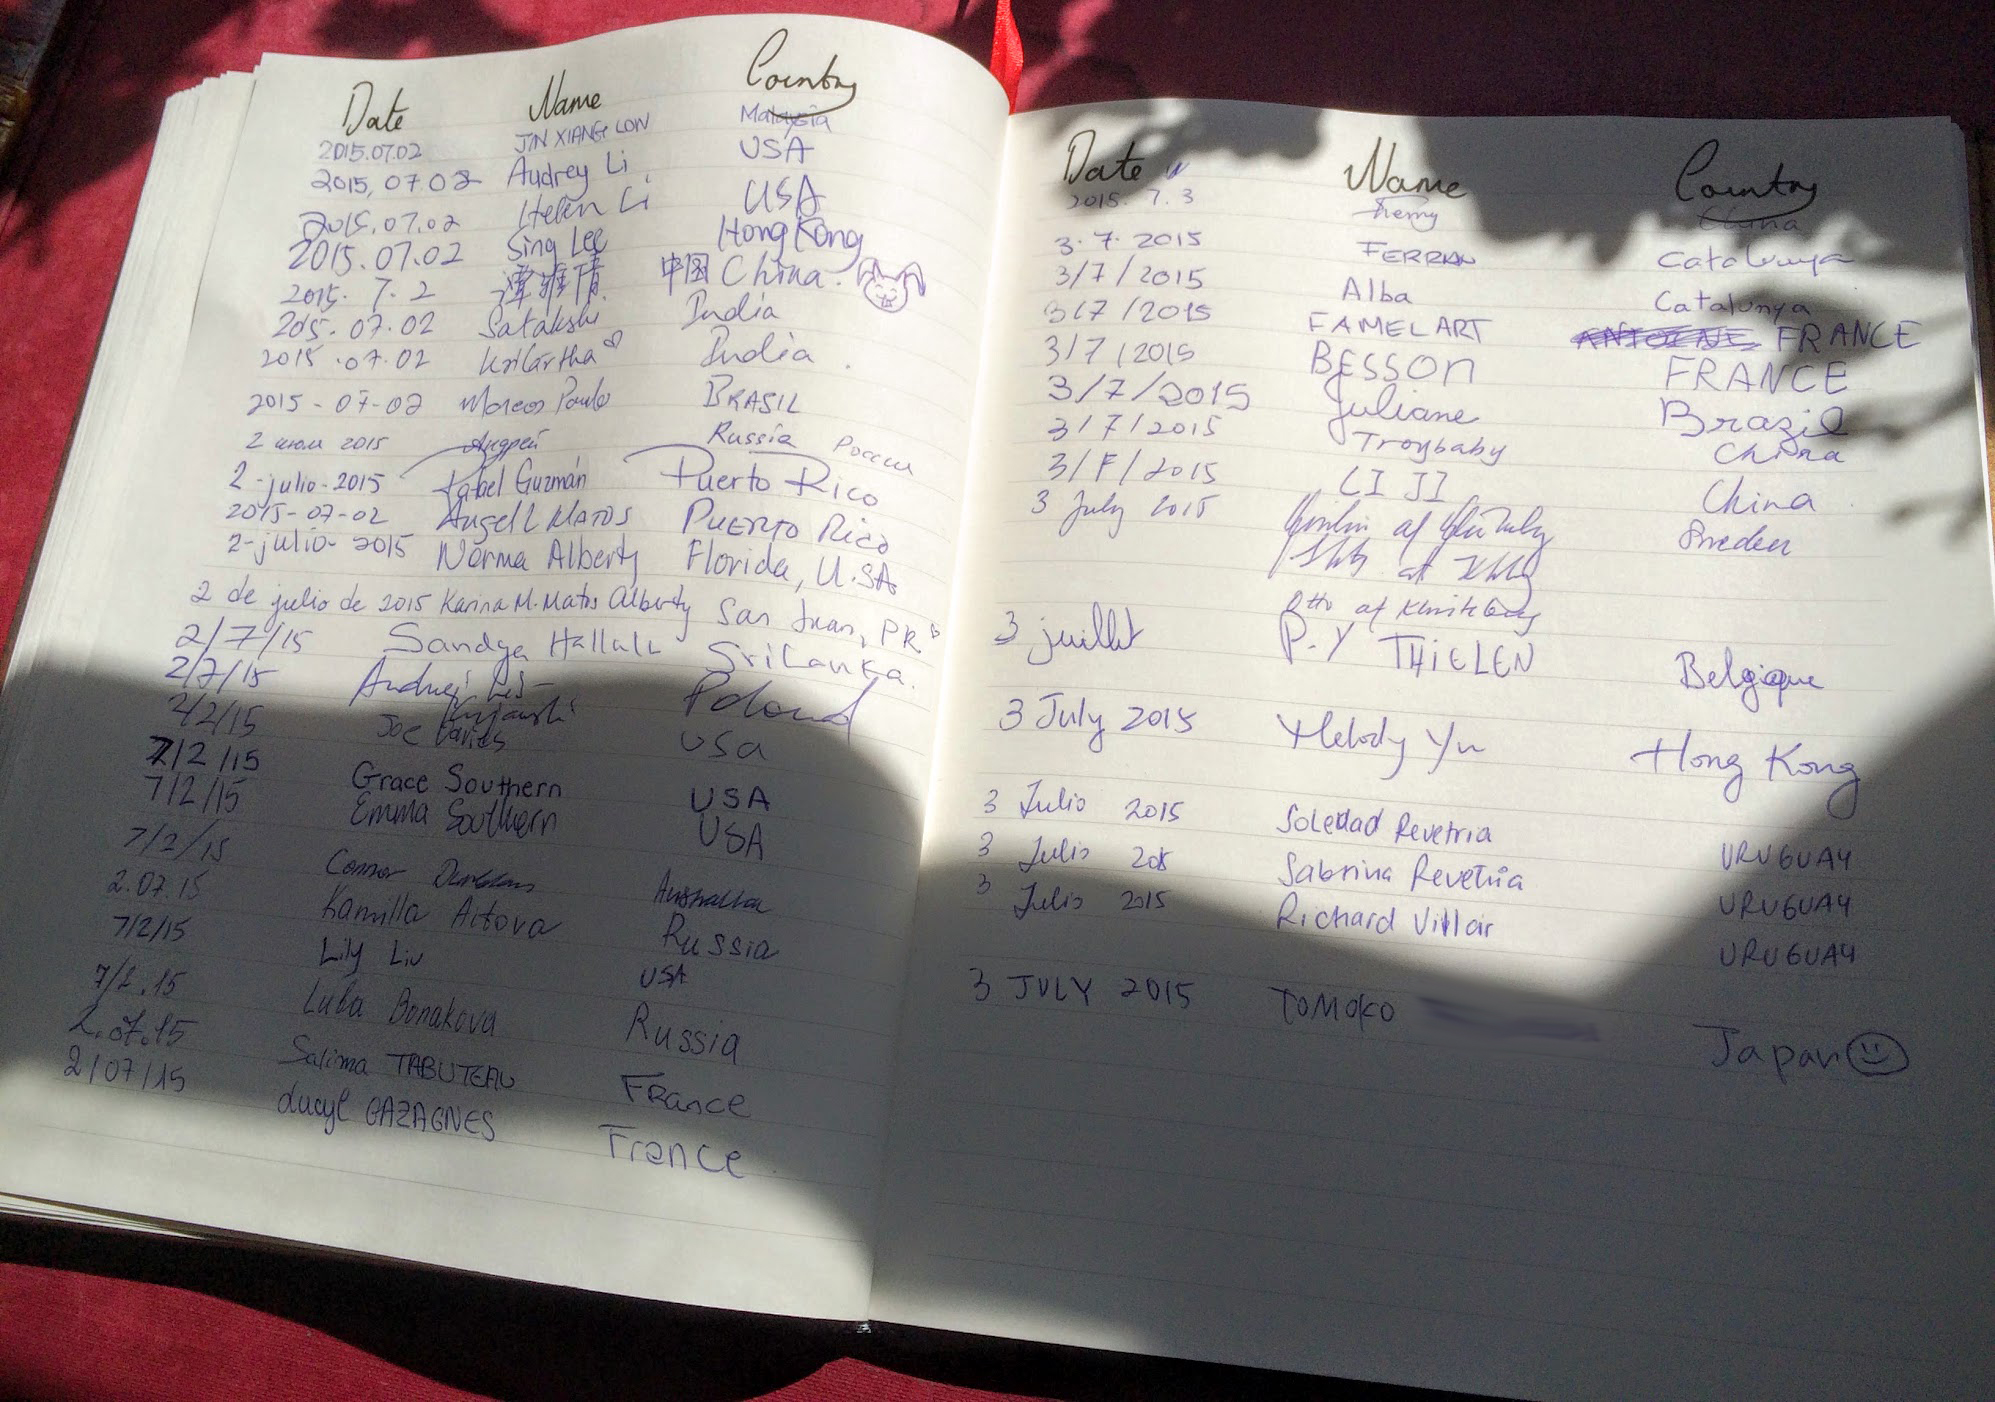 Date Name Country
2015.07.02 JIN XIANG LON Malaysia
2015.07.02 Audrey Li USA
2015.07.02 Helen Li USA
2015.07.02 Sing Lee Hong Kong
2015. 7. 2 中国 China
205. 07. 02 Satakshi India
2015 .07.02 India
2015-07-02 Marcos Paulo BRASIL
2 июля 2015 Андрей Russia Россия
2-julio-2015 Guzmán Puerto Rico
2015-07-02 Angel L Matos Puerto Rico
2-julio-2015 Norma Alberty Florida, U.SA
2 de julio de 2015 Karina M. Matos Alberty San Juan, PR
2/7/15 Sandya Sri Lanka.
2/7/15 Andrzej Poland
7/2/15 Joe Davies USA
7/2/15 Grace Southern USA
7/2/15 Emma Southern USA
7/2/15 Connor Australia
2.07.15 Kamilla Aitova Russia
7/2/15 Lily Liu USA
7/2.15 Luba Bonakova Russia
2.07.15 Salima TABUTEAU France
2/07/15 GAZAGNES France
Date Name Country
2015. 7. 3 China
3.7.2015 FERRAN Catalunya
3/7/2015 Alba Catalunya
3/7/2015 FAMELART FRANCE
3/7/2015 BESSON FRANCE
3/7/2015 Juliane Brazil
3/7/2015 Troybaby China
3/7/2015 LI JI China
3 July 2015 Sweden
3 juillet P.Y THIELEN Belgique
3 July 2015 Melody Yu Hong Kong
3 Julio 2015 Soledad Revetria URUGUAY
3 Julio 2015 Sabrina Revetria URUGUAY
3 Julio 2015 Richard Villar URUGUAY
3 JULY 2015 TOMOKO Japan